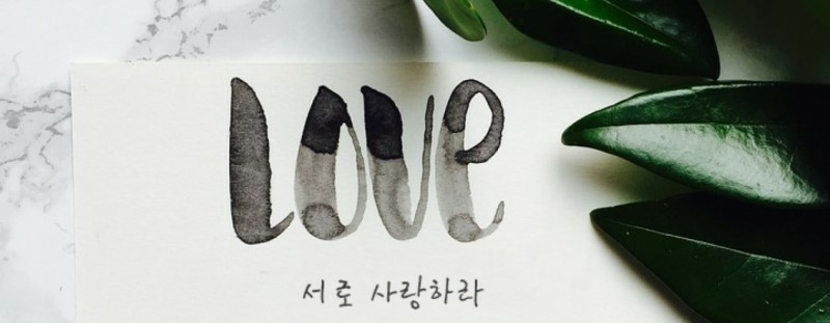 LOVe
서로 사랑하라